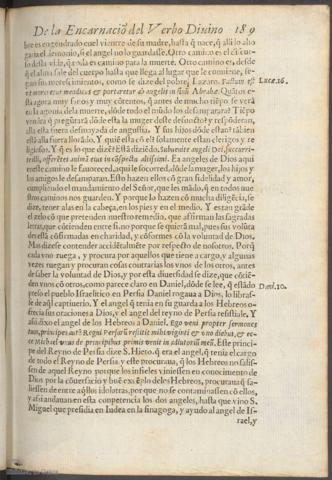 De la Encarnació del Verbo Divino 189
bre es engendrado cuel vientre de su madre, hasta q̄ nace, q̄ alli lo aho
gara el demonio, si el angel no lo guardasse. Otro camino es el dicur
so desta vida, q̄ toda es camino para la muerte. Otro camino es, desde
q̄ el alma sale del cuerpo hasta que llega al lugar que le conuiene, se
gun sus merecimientos, como se dize del pobre, Lazaro. Factum est
et moreretur mendicus & portaretur ab angelis in sinū Abrahæ. Quātos e-
sta agora muy sanos y muy cōtentos, q̄ antes de mucho tiēpo se verā
en la agonia de la muerte, dōde todo el mūdo los desamparara? Tiēpo
vendra q̄ preguntarā dōde esta la muger deste desuncto? y respōderan,
alla esta fuera desmayada de angustia. Y sus hijos dōde estan? tābien
està alla fuera llorādo. Y quiē esta cō el? solamente estan clerigos y re
ligiosos. Y q̄ es lo que dizē? Està diziēdo, Subuenite angeli Dei, succurri-
te illi, offerētes animā eius in cōspectu altissimi. Ea angeles de Dios aqui
en este camino le fauoreced, aqui le socorred, dōde la muger, los hijos y
los amigos le desamparan. Esto hazen ellos cō gran fidelidad y amor,
cumpliendo el mandamiento del Señor, que les māda, q̄ en todos nue
stros caminos nos guarden. Y porque lo hazen cō mucha diligēcia, se
dize, tener alas en la cabeça, en los pies y en el medio. Y es tan grāde
el zelo cō que pretenden nuestro remedio, que affirman las sagradas
letras, que cōtienden entre si. no porque se quierā mal, pues sus volūta
des està cōfirmadas en charidad, y estan cō la volūtad de Dios vnidas.
Mas dizese contender accidētalmēte por respecto de nosotros. Porq̄
cada vno ruega, y procura por aquellos que tiene a cargo, y algunas
vezes ruegan y procuran cosas contrarias los vnos de los otros, antes
de saber la voluntad de Dios, y por esta diuersidad se dize, que cōtiē-
den vnos cō otros, como parece claro en Daniel, dōde se lee, q̄ estādo
preso el pueblo Israelitico en Persia Daniel rogaua a Dios, lo librasse
de aq̄l captiuerio. Y el angel q̄ tenia en su guarda a los Hebreos o-
frecia sus oraciones a Dios, y el angel del reyno de Persia resistiale. Y
assi dixo el angel de los Hebreos a Daniel. Ego veni propter sermones
tuos, princeps autē Regni Persarū restitit mihi viginti & vno diebus, & ec-
ce Michael vnus de principibus primis venit in adiutoriū meū. Este princi-
pe del Reyno de Persia dize S. Hiero. q̄ era el angel, q̄ tenia el cargo
de todo el Reyno de Persia, y este procuraua, q̄ los Hebreos no salies-
sen de aquel Reyno porque los infieles viniessen en conocimiento de
Dios por la cōuersaciō y buē exēplo de los Hebreos, procuraua q̄ sa-
liessen de entre aq̄llos idolatras, por que no se contaminassen cō ellos,
y assi andauan en esta competencia los dos angeles, hasta que vino S.
Miguel que presidia en Iudea en la sinagoga, y ayudo al angel de Is-
rael, y
Luce. 16.
Dani. 10.